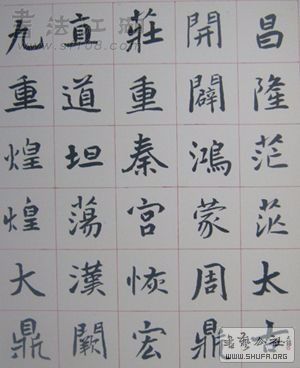 昌隆茫茫太
開闢鴻蒙周鼎
莊重秦宮恢宏
直道坦蕩漢闕
九重煌煌大鼎
www.sf108.com
書藝公社
WWW.SHUFA.ORG